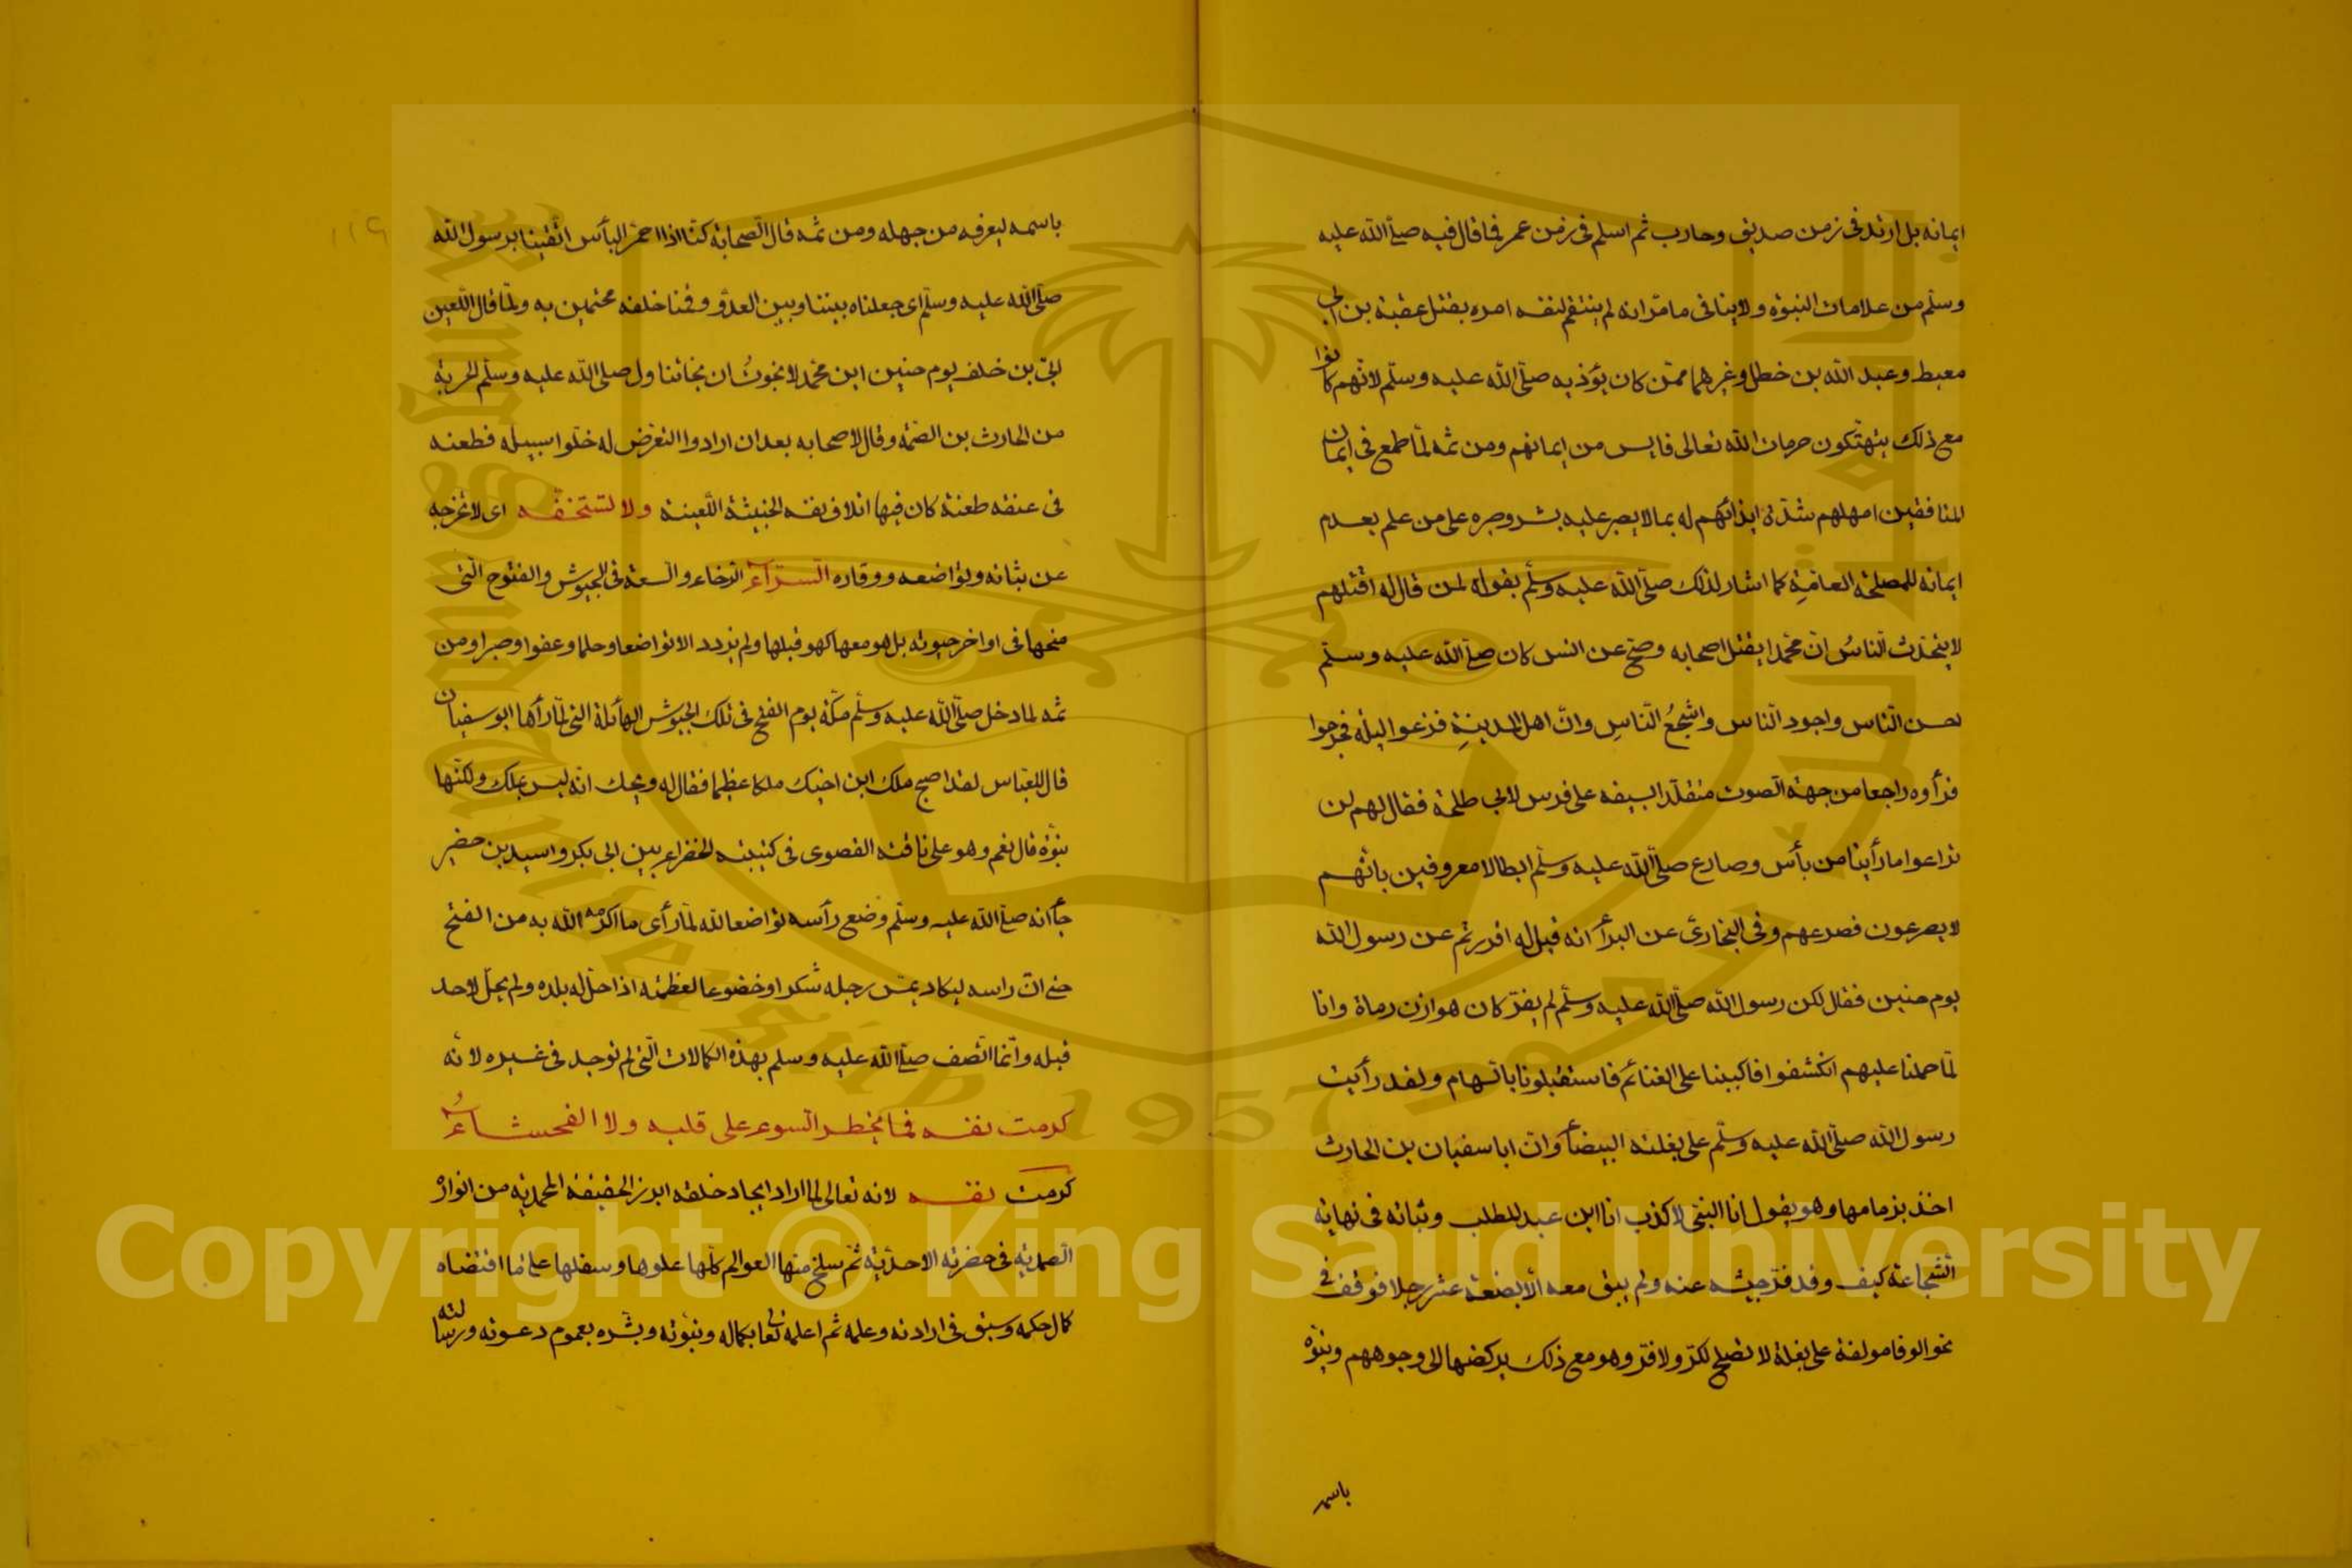 ايمانه بل ارتد فى زمن صديق وحارب ثم اسلم فى زمن عمر فما قال فيه صلّى الله عليه
وسلّم من علامات النبوة ولا ينافى ما مرّ انه لم ينتقم لنفسه امره بقتل عقبة بن ابى
معيط وعبد الله بن خطل وغيرهما ممّن كان يؤذيه صلّى الله عليه وسلّم لانّهم كانوا
مع ذلك ينتهكون حرمات الله تعالى فايس من ايمانهم ومن ثمه لمّا طمع فى ايمان
المنافقين امهلهم شدّة ايذائهم له بما لا يصبر عليه بشر وصبره على من علم بعدم
ايمانه للمصلحة العامّة كما اشار لذلك صلّى الله عليه وسلّم بقوله لمن قال له اقتلهم
لا يتحدّث النّاسُ انّ محمّدا يقتل اصحابه وصحّ عن انس كان صلّى الله عليه وسلّم
احسن النّاس واجود النّاس واشجعُ النّاسِ وانّ اهل المدينةِ فزعوا ليلة فخرجوا
فرأوه راجعا من جهة الصوت متقلّد السيفه على فرس لابى طلحة فقال لهم لن
تراعوا ما رأينا من بأس وصارع صلّى الله عليه وسلّم ابطالا معروفين بانّهم
لا يصرعون فصرعهم وفى البخارى عن البرآء انه قيل له افررتم عن رسول الله
يوم حنين فقال لكن رسول الله صلّى الله عليه وسلّم لم يفرّ كان هوازن رماة وانا
لمّا حملنا عليهم انكشفوا فاكببنا على الغنائم فاستقبلونا بالسهام ولقد رأيت
رسول الله صلّى الله عليه وسلّم على بغلته البيضآء وانّ ابا سفيان بن الحارث
اخذ بزمامها وهو يقول انا النبى لا كذب انا ابن عبد المطلب وثباته فى نهاية
الشّجاعة كيف وقد فرّ جيشه عنه ولم يبق معه الّا بضعة عشر رجلا فوقف فى
نحو الوفا مولفة على بغلة لا تصلح لكرّ ولا فرّ وهو مع ذلك يركضها الى وجوههم وينوّه
باسمه
باسمه ليعرفه من جهله ومن ثمه قال الصّحابة كنّا اذا احمرّ البأس اتّقينا برسول الله
صلّى الله عليه وسلّم اى جعلناه بيننا وبين العدوّ وقفنا خلفه محتمين به ولمّا قال اللّعين
ابىّ بن خلف يوم حنين اين محمّد لا نجوتُ ان نجا تناول صلى الله عليه وسلّم الحربة
من الحارث بن الصّمّه وقال لاصحابه بعد ان ارادوا التعرّض له خلّوا سبيله فطعنه
فى عنقه طعنة كان فيها اتلاف نفسه الخبيثة اللّعينة ولا تستخفّه اى لا تخرجه
عن ثباته وتواضعه ووقاره السّرّآءُ الرّخاء والسعة فى الجيوش والفتوح الّتى
منحها فى اواخر حيوته بل هو معها كهو قبلها ولم يزدد الا تواضعا وحلما وعفوا وصبرا ومن
ثمه لما دخل صلّى الله عليه وسلّم مكّة يوم الفتح فى تلك الجيوش الهائلة التى لمّا رأها ابو سفيان
قال للعبّاس لقد اصبح ملك ابن اخيك ملكا عظيما فقال له ويحك انّه ليس بملك ولكنّها
نبوّة قال نعم وهو على ناقته القصوى فى كتيبته الخضراء بين ابى بكر واسيد بن حضير
جآء انه صلّى الله عليه وسلّم وضع رأسه تواضعا لله لمّا رأى ما اكرمه الله به من الفتح
حتى انّ راسه ليكاد يمسّ رجله شكرا وخضوعا لعظمته اذ احلّ له بلده ولم يحلّ لاحد
قبله وانّما اتّصف صلّى الله عليه وسلم بهذه الكمالات الّتى لم توجد فى غيره لانّه
كرمت نفسه فما يخطر السّوء على قلبه ولا الفحشاءُ
كرمت نفسه لانه تعالى لما اراد ايجاد خلقه ابرز الحقيقة المحمديّة من انواره
الصّمديّة فى حضرته الاحديّة ثمّ سلخ منها العوالم كلّها علوها وسفلها على ما اقتضاه
كمال حكمه وسبق فى ارادته وعلمه ثم اعلمه تعالى بكماله ونبوّته وبشّره بعموم دعوته ورسالته
Copyright © King Saud University
King Saud University
1957